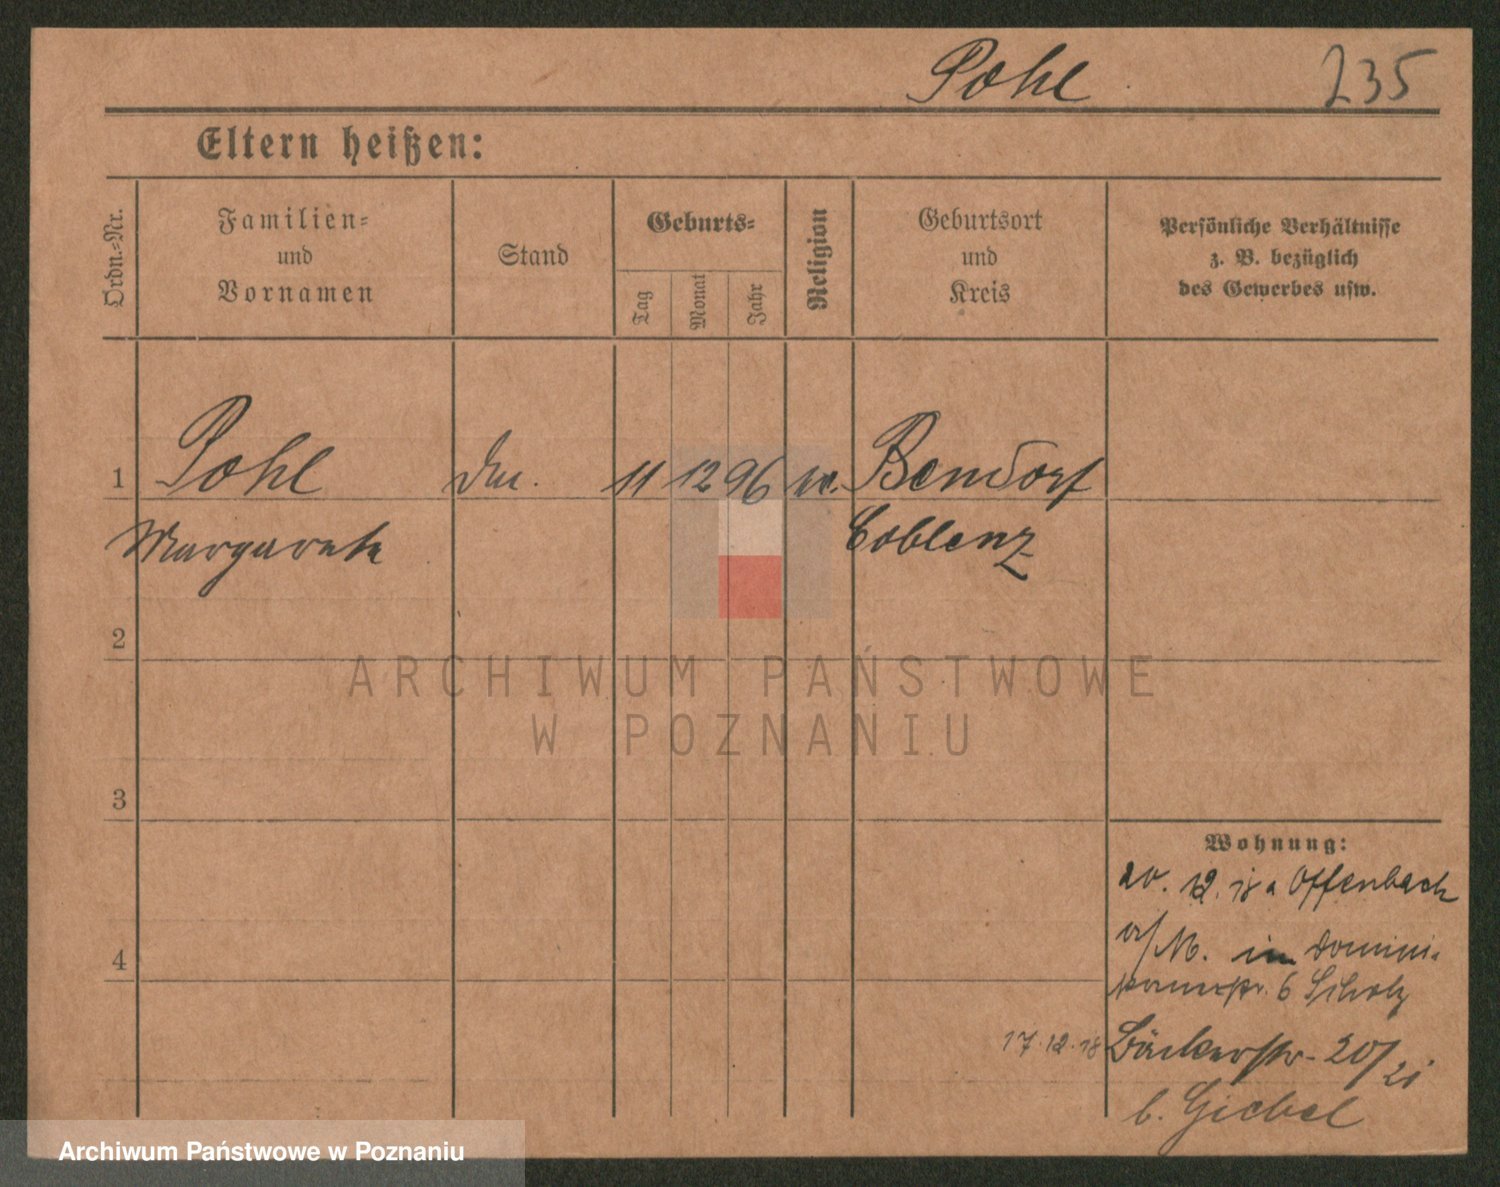 Pohl
235
Eltern heißen:
Ordn.-Nr.
Familien-
und
Vornamen
Stand
Geburts-
Tag
Monat
Jahr
Religion
Geburtsort
und
Kreis
Persönliche Verhältnisse
z. B. bezüglich
des Gewerbes usw.
1 Pohl 11 12 96 Bendorf
Margarete Coblenz
2
3
4
ARCHIWUM PAŃSTWOWE
W POZNANIU
Wohnung:
20. 12. 18 a Offenbach
a/M. in Domini-
kanerstr. 6 Scholz
17.12.18 Bäckerstr. 20/21
b. Giebel
Archiwum Państwowe w Poznaniu